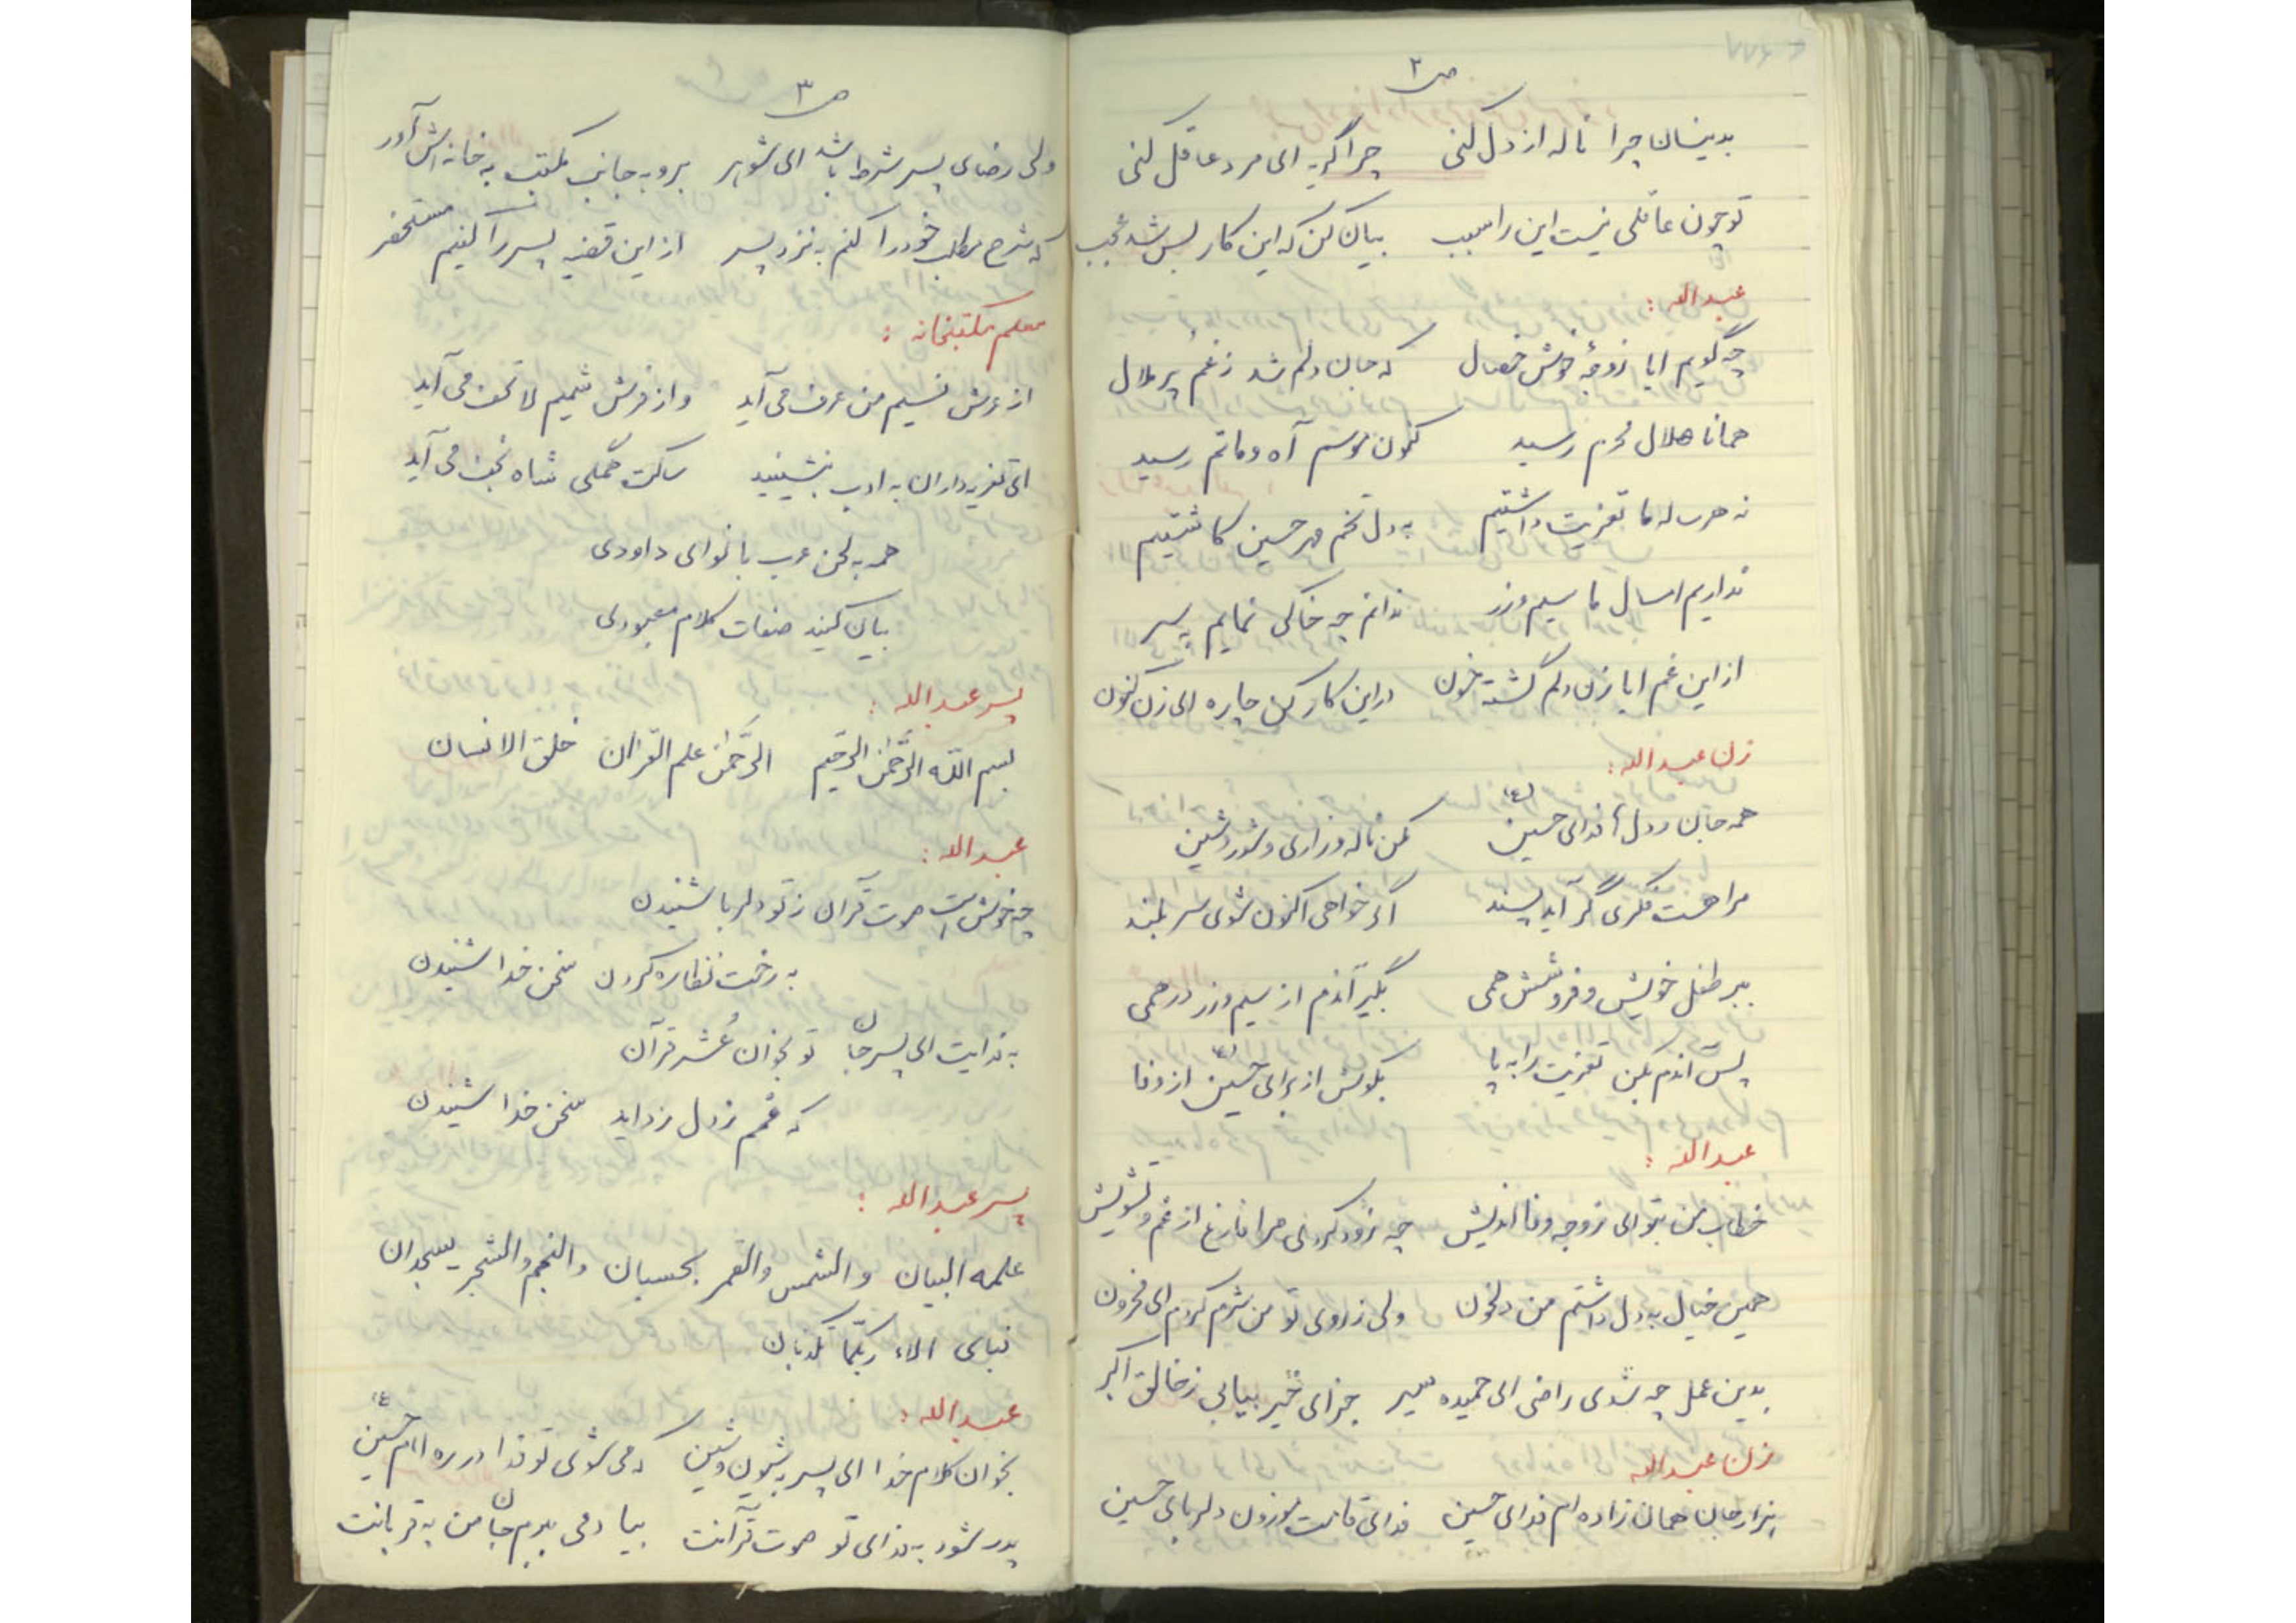 ص ۲
بدینسان چرا ناله از دل کنی چرا گریه ای مرد عاقل کنی
تو چون عاقلی نیست این را سبب بیان کن که این کار بس شد عجب
عبدالله :
چه گویم ایا زوجهٔ خوش خصال که جان و دلم شد ز غم پر ملال
همانا هلال محرم رسید کنون موسم آه و ماتم رسید
نه هر ساله ما تعزیت داشتیم به دل تخم مهر حسین کاشتیم
نداریم امسال ما سیم و زر ندانم چه خاکی نمایم به سر
از این غم ایا زن دلم گشته خون در این کار کن چاره ای زن کنون
زن عبدالله :
همه جان و دل ها فدای حسین (ع) مکن ناله و زاری و شور و شین
مرا هست فکری گر آید پسند اگر خواهی اکنون شوی سر بلند
ببر طفل خویش و فروشش همی بگیر آندم از سیم و زر درهمی
پس آندم بکن تعزیت را به پا بکوش از برای حسین (ع) از وفا
عبدالله :
خطاب من بتو ای زوجه وفا اندیش چه زود کردی مرا فارغ از غم و تشویش
همین خیال به دل داشتم من دلخون ولی ز روی تو من شرم کردم ای محزون
بدین عمل چه شدی راضی ای حمیده سیر جزای خیر بیابی ز خالق اکبر
زن عبدالله
هزار جان همان زاده ام فدای حسین فدای قامت موزون دلربای حسین
ص ۳
ولی رضای پسر شرط باشد ای شوهر برو به جانب مکتب به خانه اش آور
که شرح مطلب خود را کنم به نزد پسر از این قضیه پسر را کنیم مستحضر
معلم مکتبخانه :
از عرش نسیم من عرف می آید و از فرش شمیم لا تخف می آید
ای تعزیه داران به ادب بنشینید ساکت همگی شاه نجف می آید
همه به لحن عرب با نوای داودی
بیان کنید صفات کلام معبودی
پسر عبدالله :
بسم الله الرَّحمٰن الرحیم الرَّحمٰن علم القرآن خلق الانسان
عبدالله :
چه خوش است صوت قرآن ز تو دلربا شنیدن
به رخت نظاره کردن سخن خدا شنیدن
به فدایت ای پسر جان تو بخوان عُشر قرآن
که غمم ز دل زداید سخن خدا شنیدن
پسر عبدالله :
علمه البیان و الشمس والقمر بحسبان والنجم والشجر یسجدان
فبای الاء ربکما تکذبان
عبدالله :
بخوان کلام خدا ای پسر به شیون و شین دمی شوی تو فدا در ره امام حسین (ع)
پدر شود به فدای تو صوت قرآنت بیا دمی بدهم جان من به قربانت